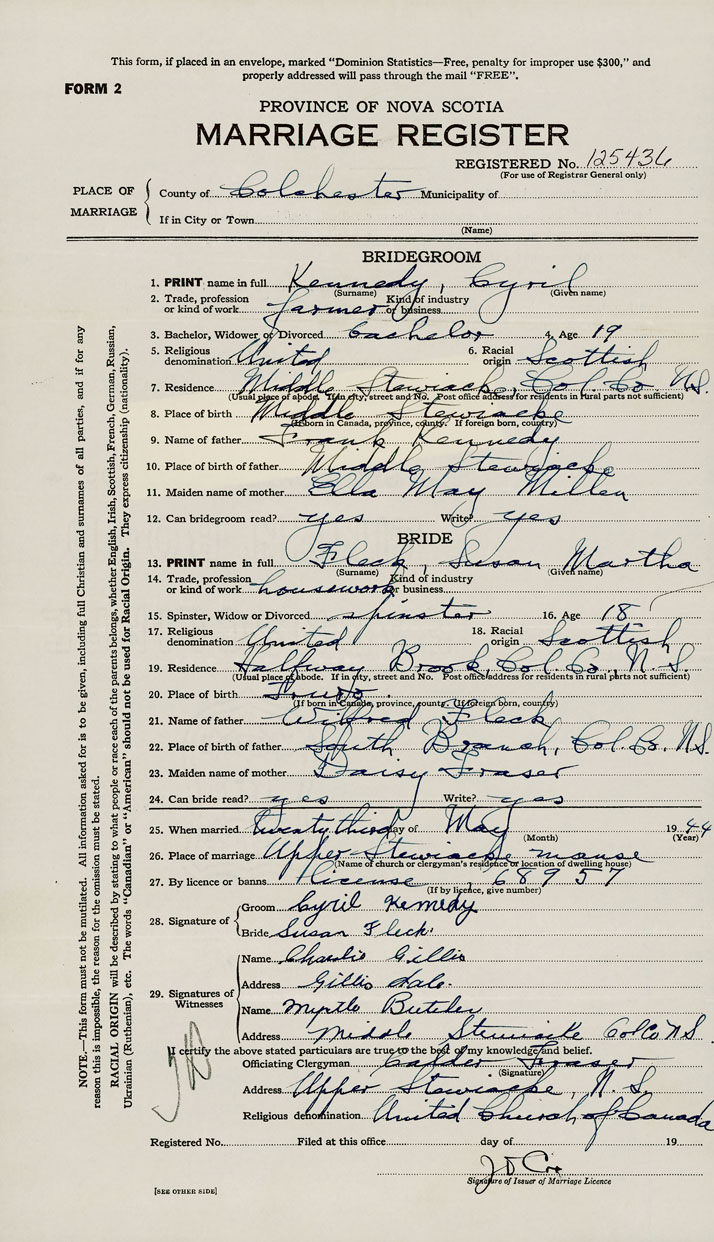 This form, if placed in an envelope, marked "Dominion Statistics—Free, penalty for improper use $300," and
properly addressed will pass through the mail "FREE".
FORM 2
PROVINCE OF NOVA SCOTIA
MARRIAGE REGISTER
REGISTERED No. 125436
(For use of Registrar General only)
PLACE OF MARRIAGE
County of Colchester Municipality of
If in City or Town
(Name)
BRIDEGROOM
1. PRINT name in full Kennedy, Cyril
(Surname) (Given name)
2. Trade, profession or kind of work farmer Kind of industry or business
3. Bachelor, Widower or Divorced bachelor 4. Age 19
5. Religious denomination United 6. Racial origin Scottish
7. Residence Middle Stewiacke, Col. Co. N.S.
(Usual place of abode. If in city, street and No. Post office address for residents in rural parts not sufficient)
8. Place of birth Middle Stewiacke
(If born in Canada, province, county. If foreign born, country)
9. Name of father Frank Kennedy
10. Place of birth of father Middle Stewiacke
11. Maiden name of mother Ella May Millen
12. Can bridegroom read? yes Write? yes
BRIDE
13. PRINT name in full Fleck, Susan Martha
(Surname) (Given name)
14. Trade, profession or kind of work housework Kind of industry or business
15. Spinster, Widow or Divorced spinster 16. Age 18
17. Religious denomination United 18. Racial origin Scottish
19. Residence Halfway Brook, Col. Co., N.S.
(Usual place of abode. If in city, street and No. Post office address for residents in rural parts not sufficient)
20. Place of birth Truro
(If born in Canada, province, county. If foreign born, country)
21. Name of father Wilfred Fleck
22. Place of birth of father South Branch, Col. Co. N.S.
23. Maiden name of mother Daisy Fraser
24. Can bride read? yes Write? yes
25. When married Twenty third day of May 1944
(Month) (Year)
26. Place of marriage Upper Stewiacke manse
(Name of church or clergyman's residence or location of dwelling house)
27. By licence or banns license, 68957
(If by licence, give number)
28. Signature of
Groom Cyril Kennedy
Bride Susan Fleck.
29. Signatures of Witnesses
Name Charlie Gillis
Address Gillis dale.
Name Myrtle Butcher
Address Middle Stewiacke Col Co N S
I certify the above stated particulars are true to the best of my knowledge and belief.
Officiating Clergyman Calder Fraser
(Signature)
Address Upper Stewiacke, N.S.
Religious denomination United Church of Canada
Registered No. Filed at this office day of 19
Signature of Issuer of Marriage Licence
[SEE OTHER SIDE]
NOTE.—This form must not be mutilated. All information asked for is to be given, including full Christian and surnames of all parties, and if for any
reason this is impossible, the reason for the omission must be stated.
RACIAL ORIGIN will be described by stating to what people or race each of the parents belongs, whether English, Irish, Scottish, French, German, Russian,
Ukrainian (Ruthenian), etc. The words "Canadian" or "American" should not be used for Racial Origin. They express citizenship (nationality).